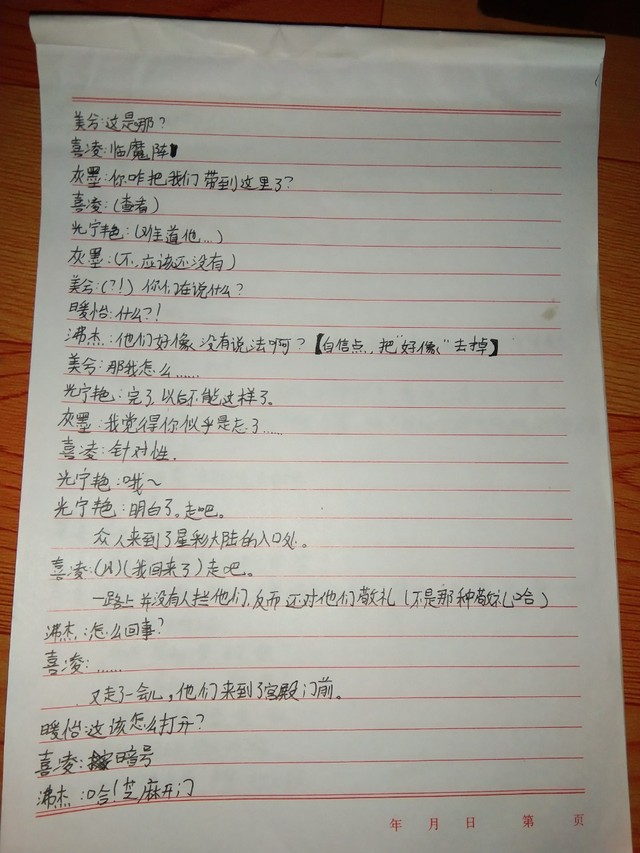 美兮:这是哪?
喜凌:临魔阵
灰墨:你咋把我们带到这里了?
喜凌:(查看)
光宁艳:(难道他…)
灰墨:(不,应该还没有)
美兮:(?!)你们在说什么?
暖怡:什么?!
沸杰:他们好像没有说话啊?【自信点,把"好像"去掉】
美兮:那我怎么……
光宁艳:完了,以后不能这样了。
灰墨:我觉得你似乎是忘了……
喜凌:针对性.
光宁艳:哦~
光宁艳:明白了。走吧。
众人来到了星彩大陆的入口处。
喜凌:(X)(我回来了)走吧。
一路上并没有人拦他们,反而还对他们敬礼(不是那种敬礼哈)
沸杰:怎么回事?
喜凌:……
又走了一会儿,他们来到了宫殿门前。
暖怡:这该怎么打开?
喜凌:暗号
沸杰:哈!芝麻开门
年 月 日 第 页